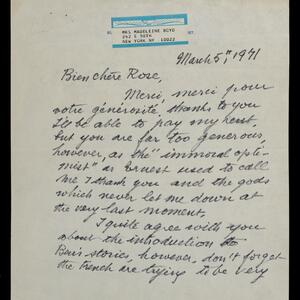 MRS MADELEINE BOYD
242 E 50TH
NEW YORK NY
10022
March 5th 1971
Bien chère Rose,
Merci, merci pour
votre générosité, thanks to you
I'll be able to pay my rent.
but you are far too generous,
however, as the "immoral opti-
mist" as Ernest used to call
me I thank you and the gods
which never let me down at
the very last moment.
I quite agree with you
about the introduction to
Ben's stories, however, don't forget
the French are trying to be very